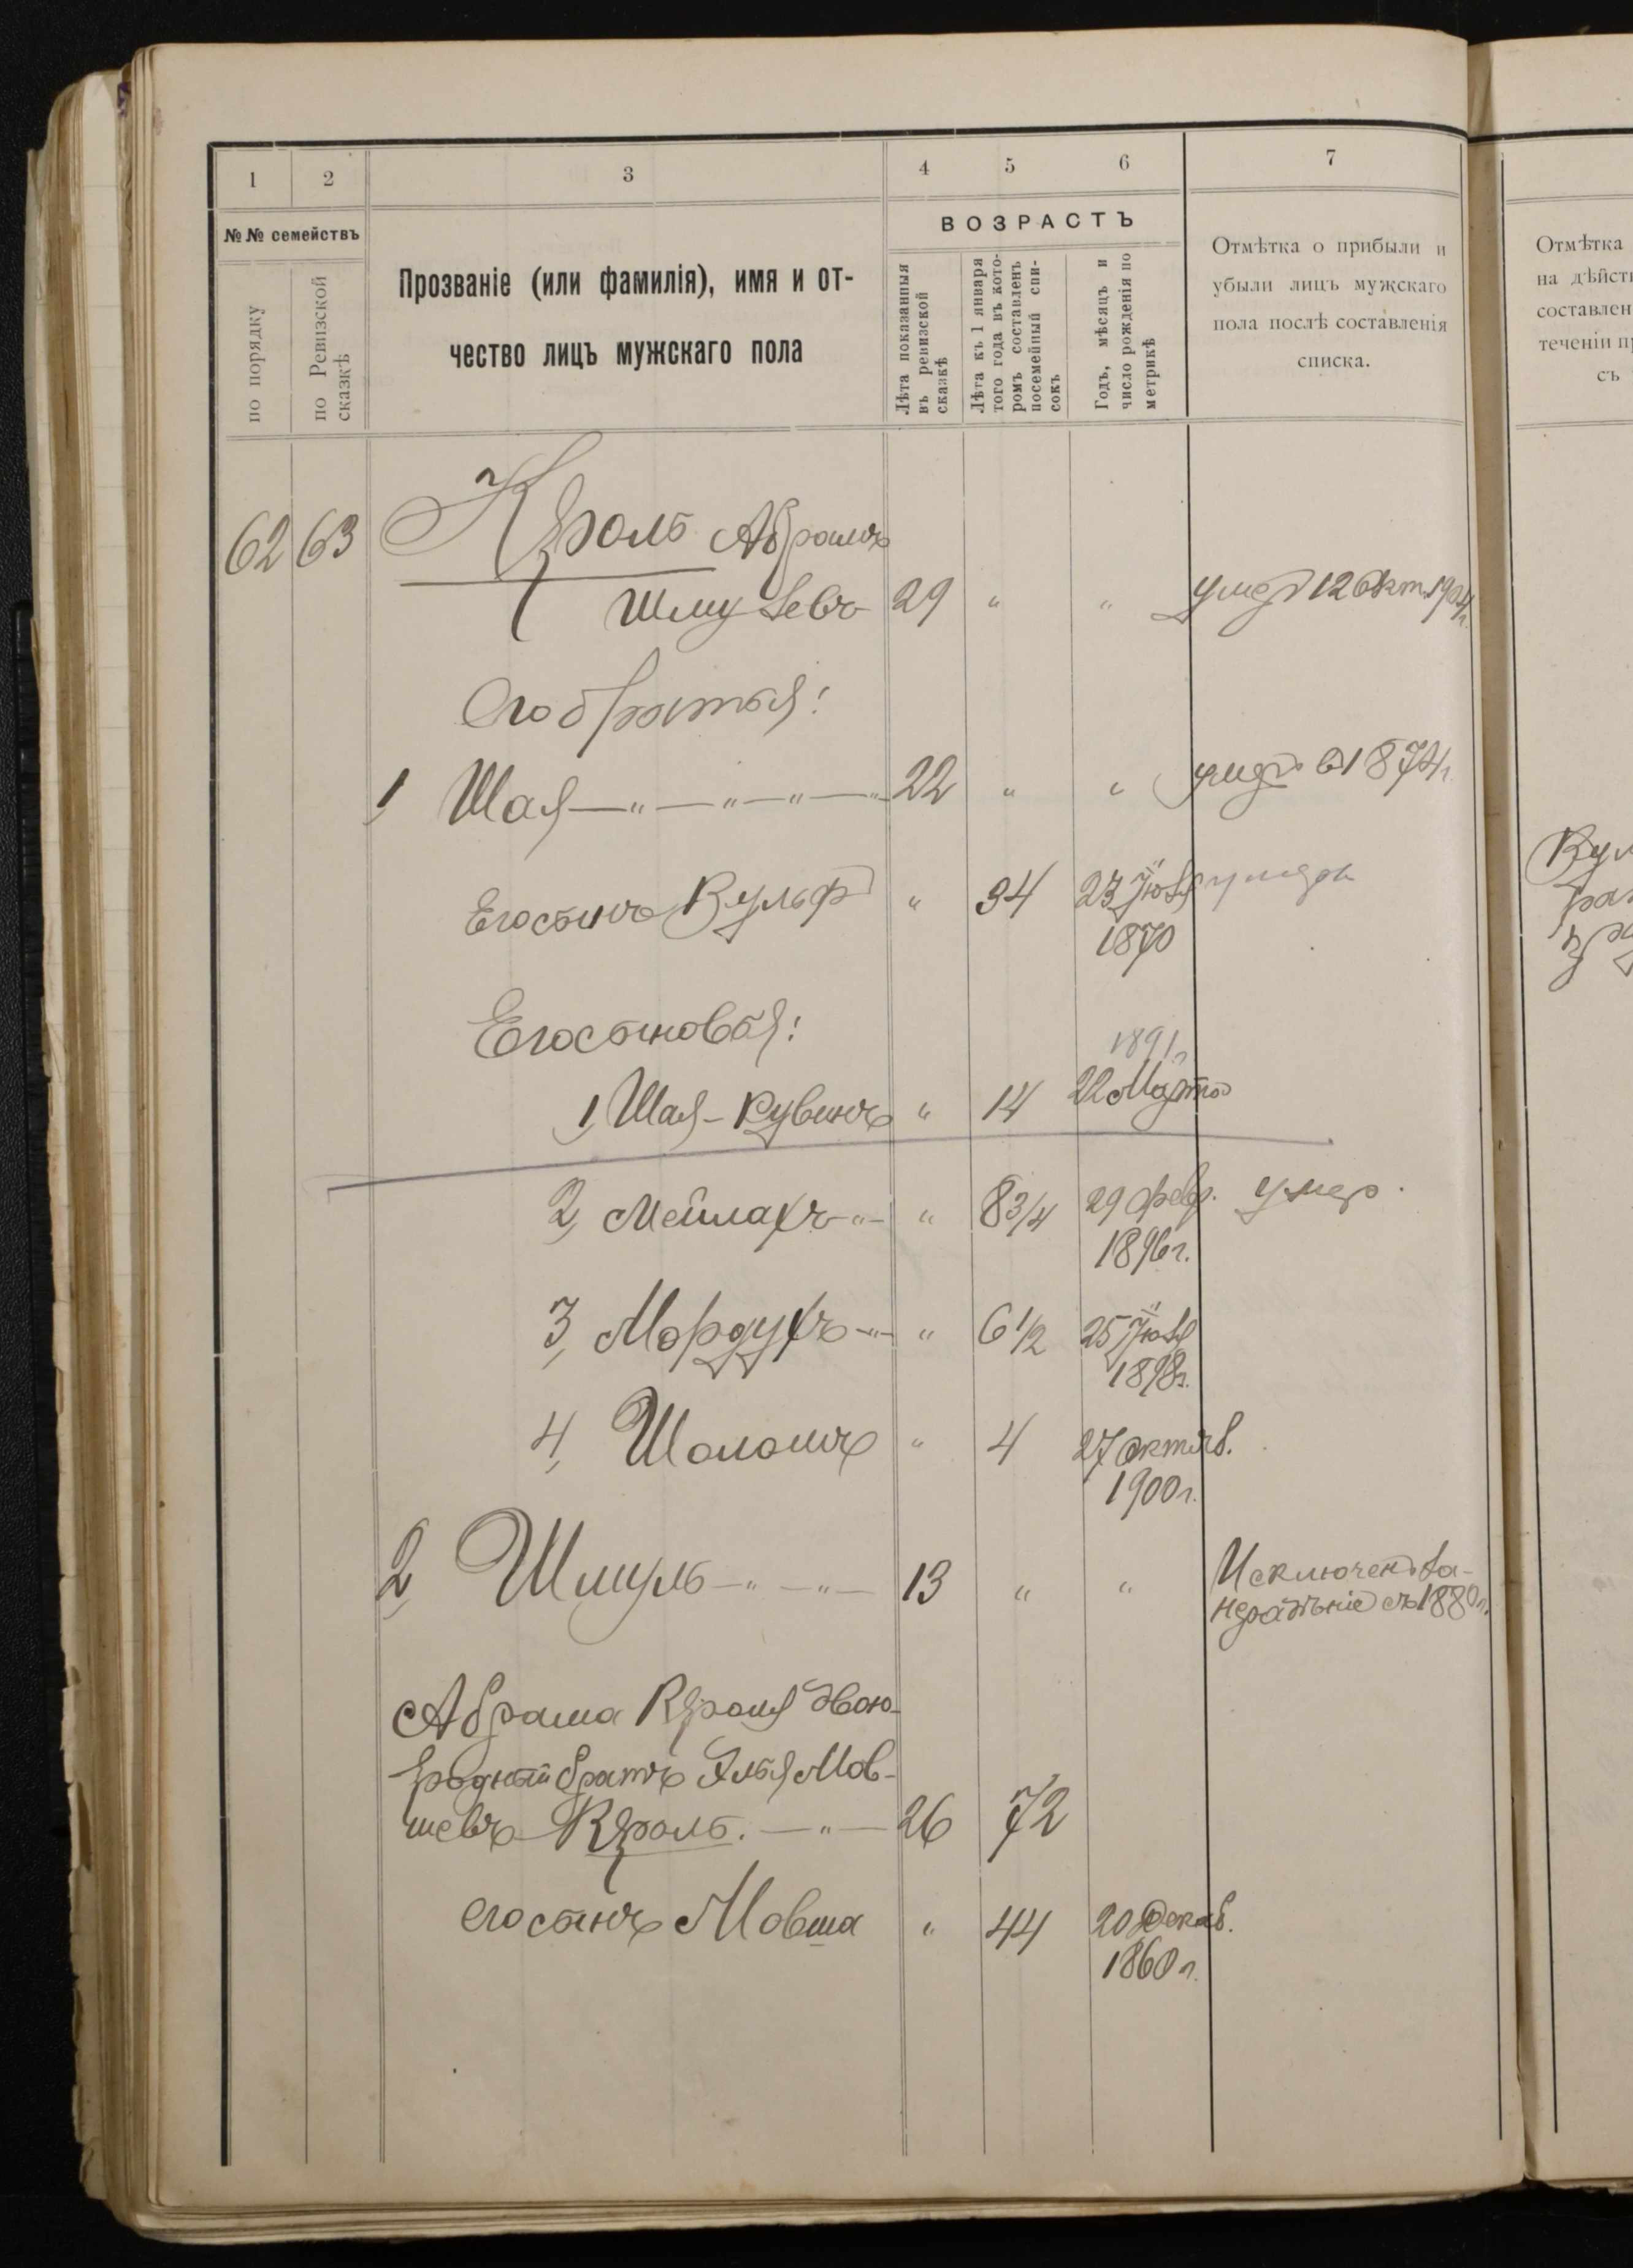 1 2 3 4 5 6 7
№№ семействъ
по порядку
по Ревизской сказкѣ
Прозваніе (или фамилія), имя и от-
чество лицъ мужскаго пола
ВОЗРАСТЪ
Лѣта показанныя
въ ревизской
сказкѣ
Лѣта къ 1 января
того года въ кото-
ромъ составленъ
посемейный спи-
сокъ
Годъ, мѣсяцъ и
число рожденія по
метрикѣ
Отмѣтка о прибыли и
убыли лицъ мужскаго
пола послѣ составленія
списка.
Отмѣтка
на дѣйст
составлен
теченіи п
съ
62 63 Кроль Абрамъ
Шмулевъ 29 " " умеръ 12 Окт. 1904 г.
Его братья:
1, Шая —"—"—"—"— 22 " " умеръ в 1874 г.
Его сынъ Вульф " 34 23 Іюля умеръ
1870
Его сыновья:
1891 г.
1, Шая-Рувинъ " 14 22 Марта
2, Мейлахъ -"- " 8 3/4 29 февр. умер.
1896 г.
3, Мордухъ -"- " 6 1/2 25 Іюля
1898 г.
4, Шоломъ " 4 27 октяб.
1900 г.
2, Шмуль -"- -"- 13 " " Исключенъ за-
нерозысканіе съ 1880 г.
Абрама Кроля двою-
родный братъ Элья Мов-
шевъ Кроль. —"— 26 72
его сынъ Мовша " 44 20 Декаб.
1860 г.